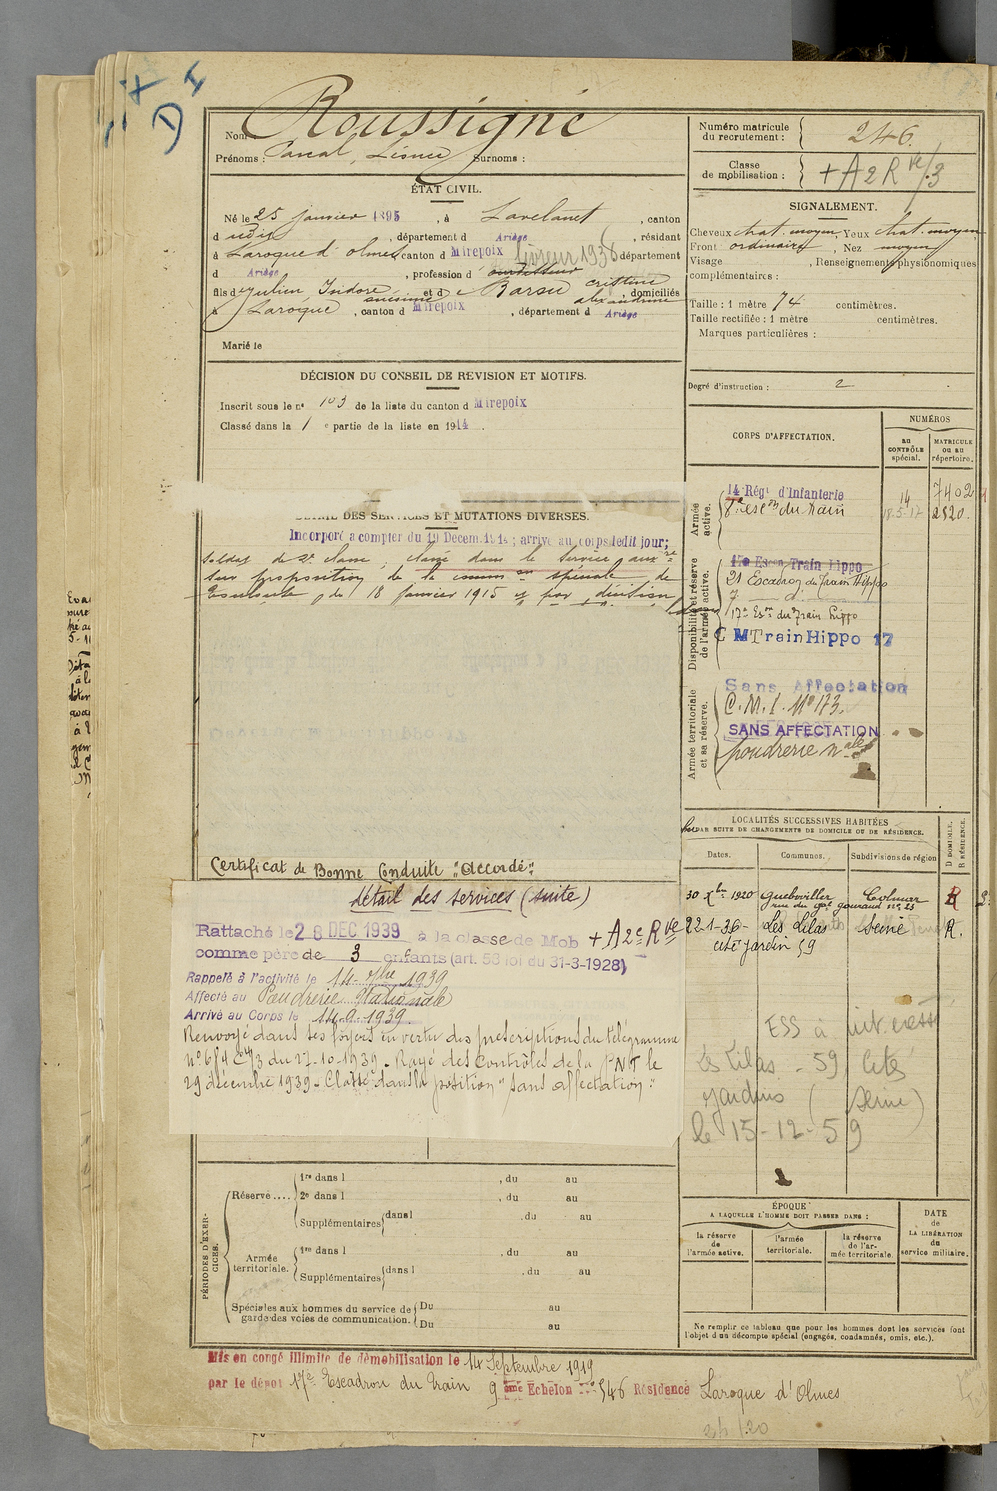 D I
Roussigné
Nom :
Prénoms : Pascal, Surnoms :
Numéro matricule du recrutement : 246
Classe de mobilisation : + A 2 R ve/3
ÉTAT CIVIL.
Né le 25 janvier 1895, à Lavelanet, canton
d udit, département d Ariège, résidant
à Laroque d'olmes canton d Mirepoix département
d Ariège, profession d
fils de Julien Isidore et d e Barsu domiciliés
à Laroque, canton d Mirepoix, département d Ariège
Marié le
SIGNALEMENT.
Cheveux chat. moyen, Yeux chat. moyen
Front ordinaire, Nez moyen
Visage , Renseignements physionomiques
complémentaires :
Taille : 1 mètre 74 centimètres.
Taille rectifiée : 1 mètre centimètres.
Marques particulières :
Degré d'instruction : 2
DÉCISION DU CONSEIL DE REVISION ET MOTIFS.
Inscrit sous le n° 103 de la liste du canton d Mirepoix
Classé dans la 1 e partie de la liste en 1914.
DÉTAIL DES SERVICES ET MUTATIONS DIVERSES.
Incorporé à compter du 19 Décem. 1914 ; arrivé au corps ledit jour ;
soldat de 2e classe, classé dans le service aux re
sur proposition de la comm on spéciale de
Toulouse du 18 janvier 1915
Certificat de Bonne Conduite "Accordé".
CORPS D'AFFECTATION.
NUMÉROS
AU CONTRÔLE spécial.
MATRICULE OU AU répertoire.
Armée active.
14 Régt d'Infanterie 14 7402
du train 18.5.17 2820
Disponibilité et réserve de l'armée active.
17e Escon Train Hippo
21 Escadron du Train Hippo
7 d°
17e Eson du Train Hippo
C M Train Hippo 17
Armée territoriale et sa réserve.
Sans Affectation
C. M. I. N° 173.
SANS AFFECTATION
poudrerie nale
LOCALITÉS SUCCESSIVES HABITÉES
PAR SUITE DE CHANGEMENTS DE DOMICILE OU DE RÉSIDENCE.
Dates. Communes. Subdivisions de région D DOMICILE. R RÉSIDENCE.
30 Xbre 1920 Guebwiller Colmar R
rue du gal gouraud n° 23
22-1-36- Les Lilas Seine R.
cité jardin 59
ESS à
Les Lilas - 59, Cité
Jardins (Seine)
le 15-12-59
détail des services (suite)
Rattaché le 28 DEC 1939 à la classe de Mob + A 2e Rve
comme père de 3 enfants (art. 58 loi du 31-3-1928)
Rappelé à l'activité le 14 7bre 1939
Affecté au Poudrerie Nationale
Arrivé au Corps le 14.9.1939.
Renvoyé dans ses foyers en vertu des prescriptions du télégramme
du 27-10-1939. Rayé des Contrôles de la PNT le
29 décembre 1939. Classé dans la position "sans affectation".
PÉRIODES D'EXERCICES.
Réserve....
1re dans l , du au
2e dans l , du au
Supplémentaires dans l , du au
Armée territoriale.
1re dans l , du au
Supplémentaires dans l , du au
Spéciales aux hommes du service de garde des voies de communication.
Du au
Du au
ÉPOQUE
A LAQUELLE L'HOMME DOIT PASSER DANS :
la réserve de l'armée active.
l'armée territoriale.
la réserve de l'armée territoriale.
DATE de LA LIBÉRATION du service militaire.
Ne remplir ce tableau que pour les hommes dont les services font
l'objet d'un décompte spécial (engagés, condamnés, omis, etc.).
Mis en congé illimité de démobilisation le 14 Septembre 1919
par le dépôt 17e Escadron du Train 9 ème Echelon n° 546 Résidence Laroque d'Olmes